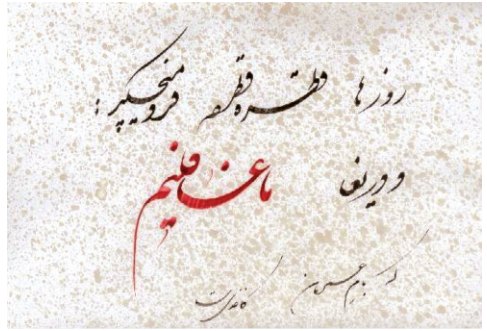 روزها قطره قطره فرو میچکید:
و دریغا ما غافلیم